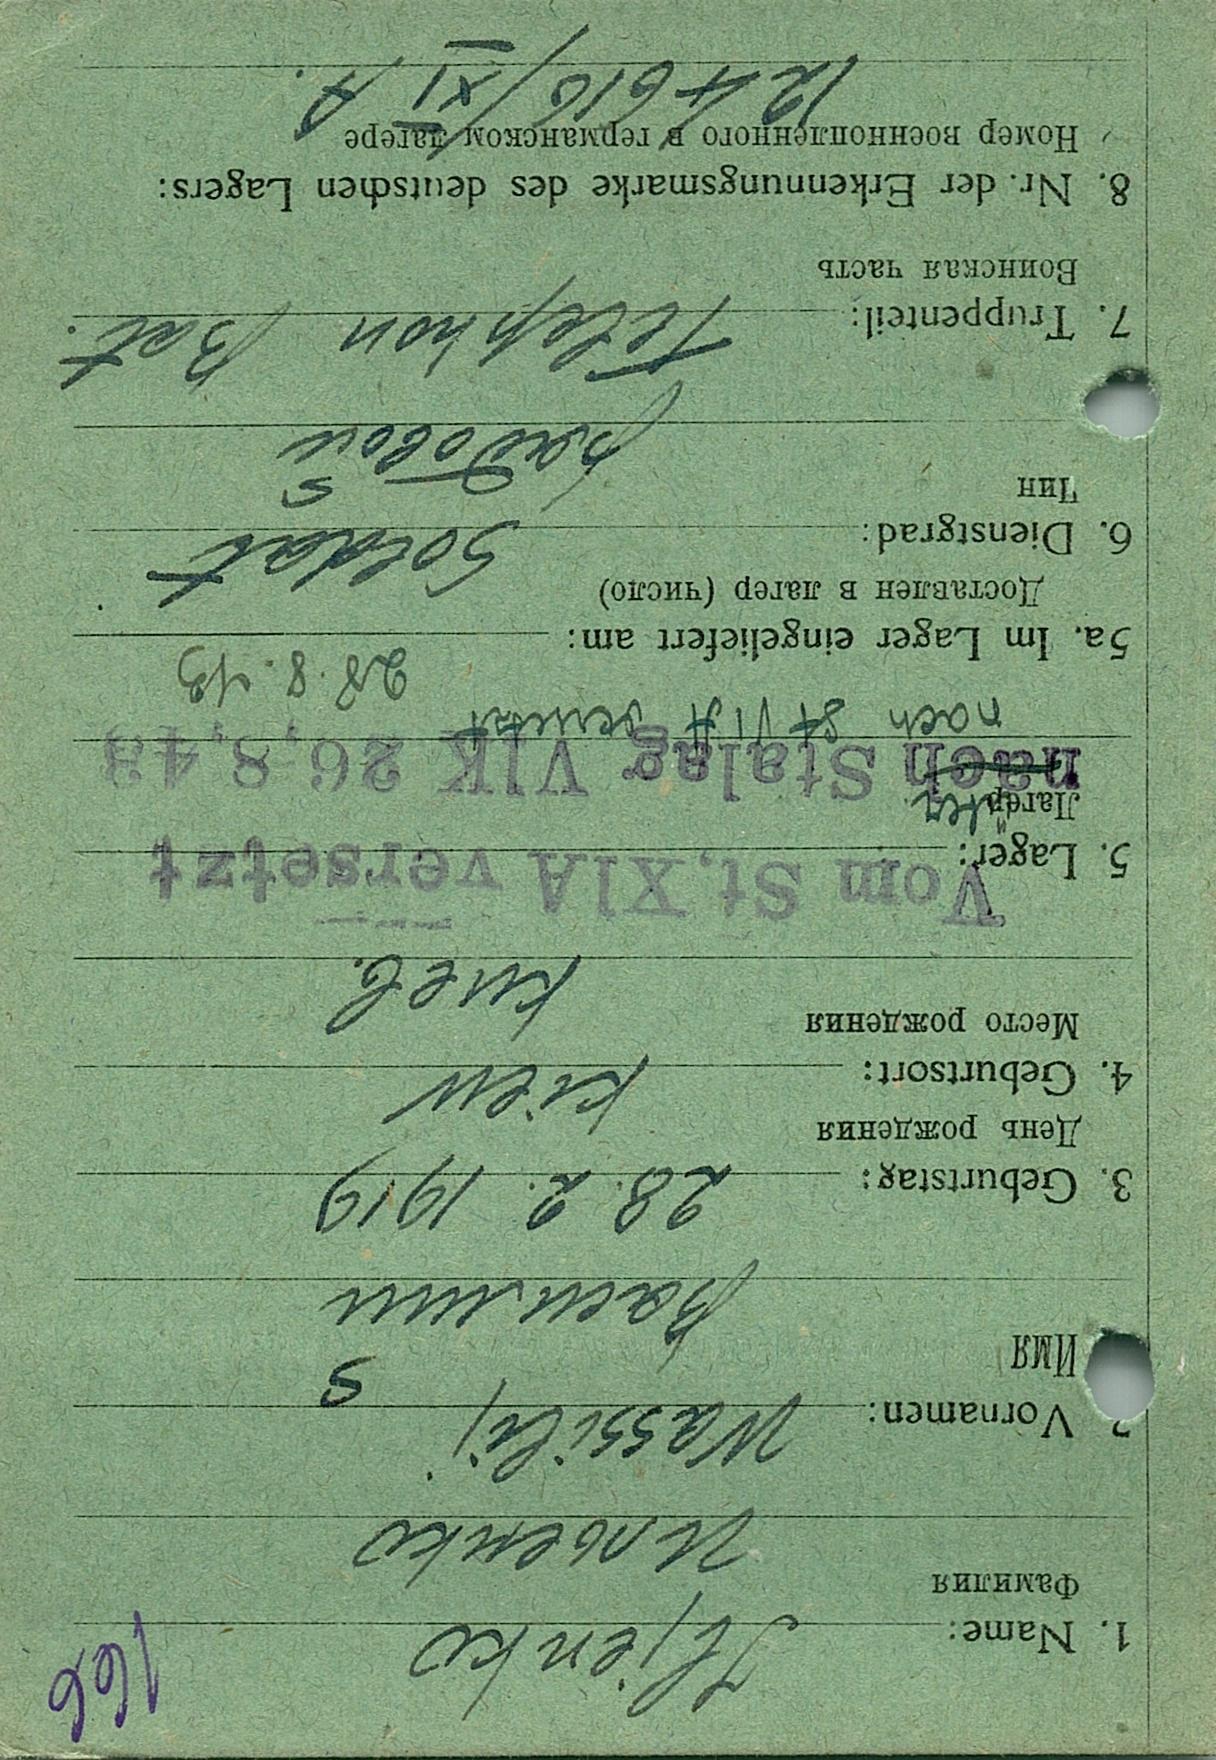 166
1. Name: Iljenko
Фамилия
Ильенко
2. Vornamen: Wassilij
Имя
Василий
3. Geburtstag: 28. 2. 1919
День рождения
4. Geburtsort: Kiew
Место рождения
Киев.
Vom St. XIA versetzt
5. Lager:
Лагерь
nach Stalag VIK 26,8,43
nach St VI A versetzt
5a. Im Lager eingeliefert am: 28. 8. 43
Доставлен в лагер (число)
6. Dienstgrad: Soldat
Чин
рядовой
7. Truppenteil: Telephon Bat.
Воинская часть
8. Nr. der Erkennungsmarke des deutschen Lagers:
Номер военнопленного в германском лагере
124616/XI A.